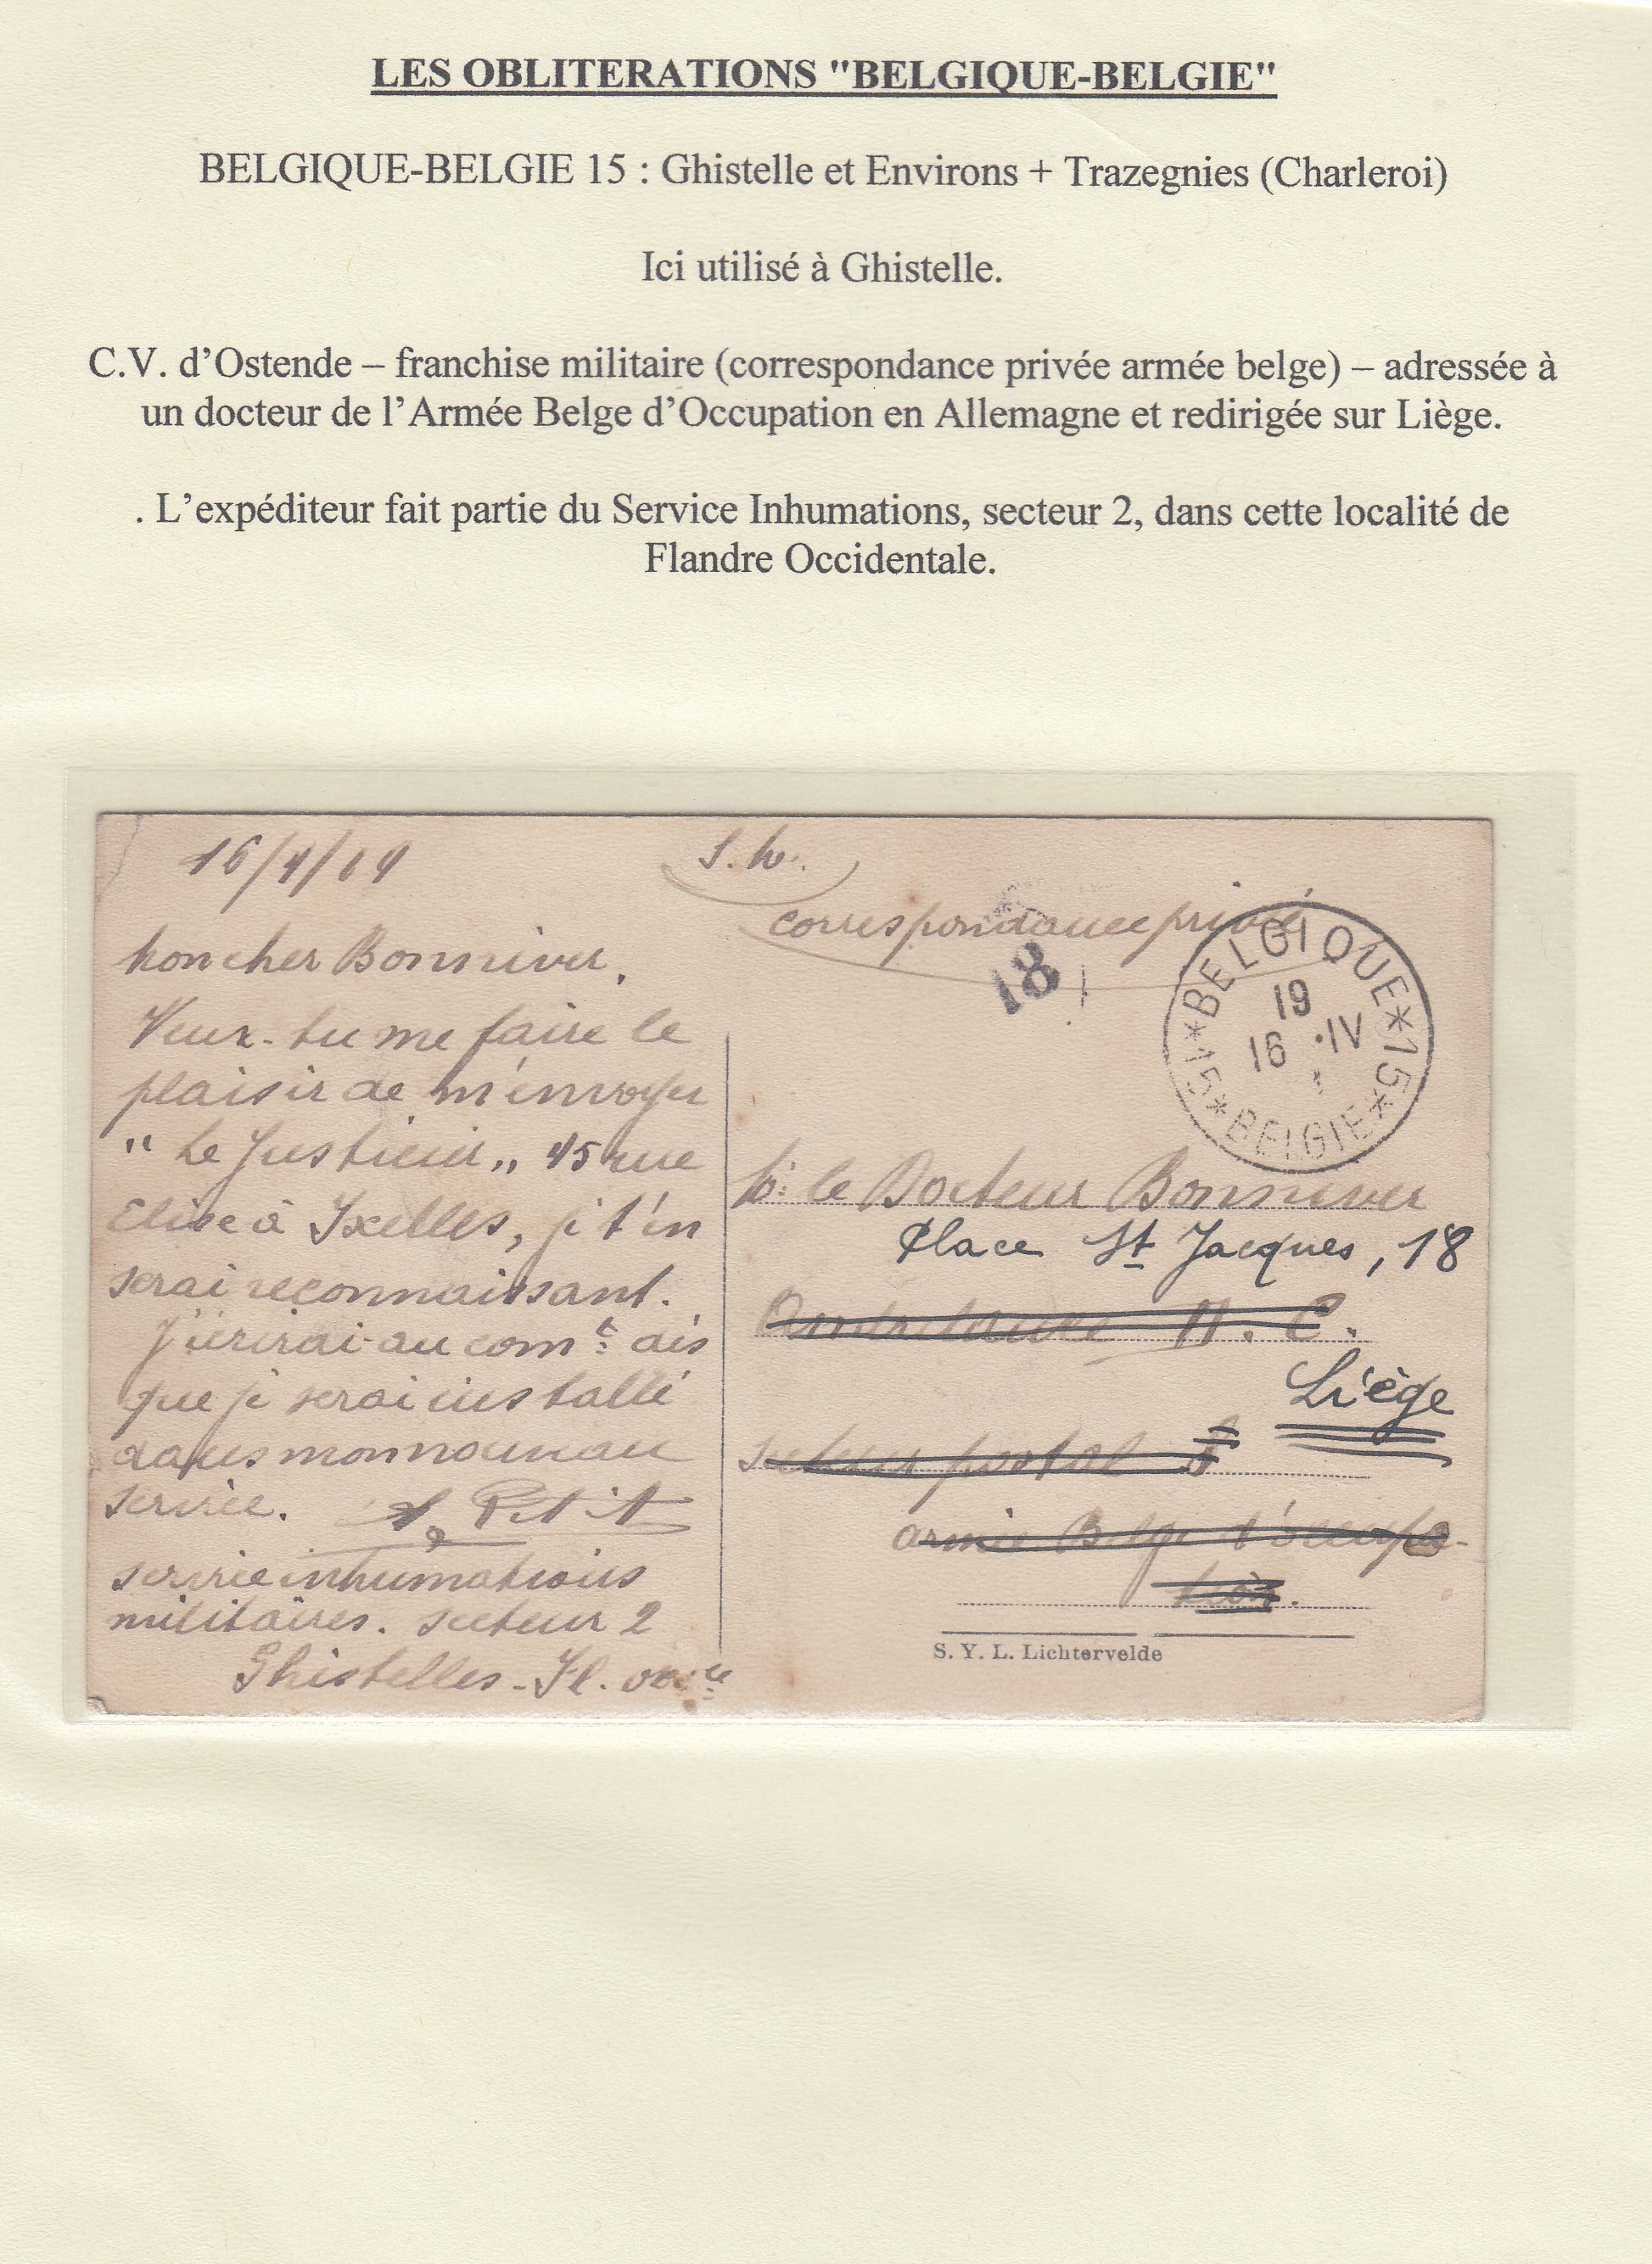 LES OBLITERATIONS "BELGIQUE-BELGIE"
BELGIQUE-BELGIE 15 : Ghistelle et Environs + Trazegnies (Charleroi)
Ici utilisé à Ghistelle.
C.V. d’Ostende – franchise militaire (correspondance privée armée belge) – adressée à
un docteur de l’Armée Belge d’Occupation en Allemagne et redirigée sur Liège.
. L’expéditeur fait partie du Service Inhumations, secteur 2, dans cette localité de
Flandre Occidentale.
16/4/19
S. M.
correspondance privée
18
*BELGIQUE*15*BELGIE*15
19
16 ·IV
Mon cher Bonniver,
Veux-tu me faire le
plaisir de m'envoyer
"Le Justicier" 45 rue
Elise à Ixelles, je t'en
serai reconnaissant.
J'écrirai au comt dès
que je serai installé
dans mon nouveau
service. Petit
service inhumations
militaires. secteur 2
Ghistelles - Fl. occle
M: le Docteur Bonniver
Place St Jacques, 18
A. C.
Liège
secteur postal
armée Belge d'occupa-
tion.
S. Y. L. Lichtervelde